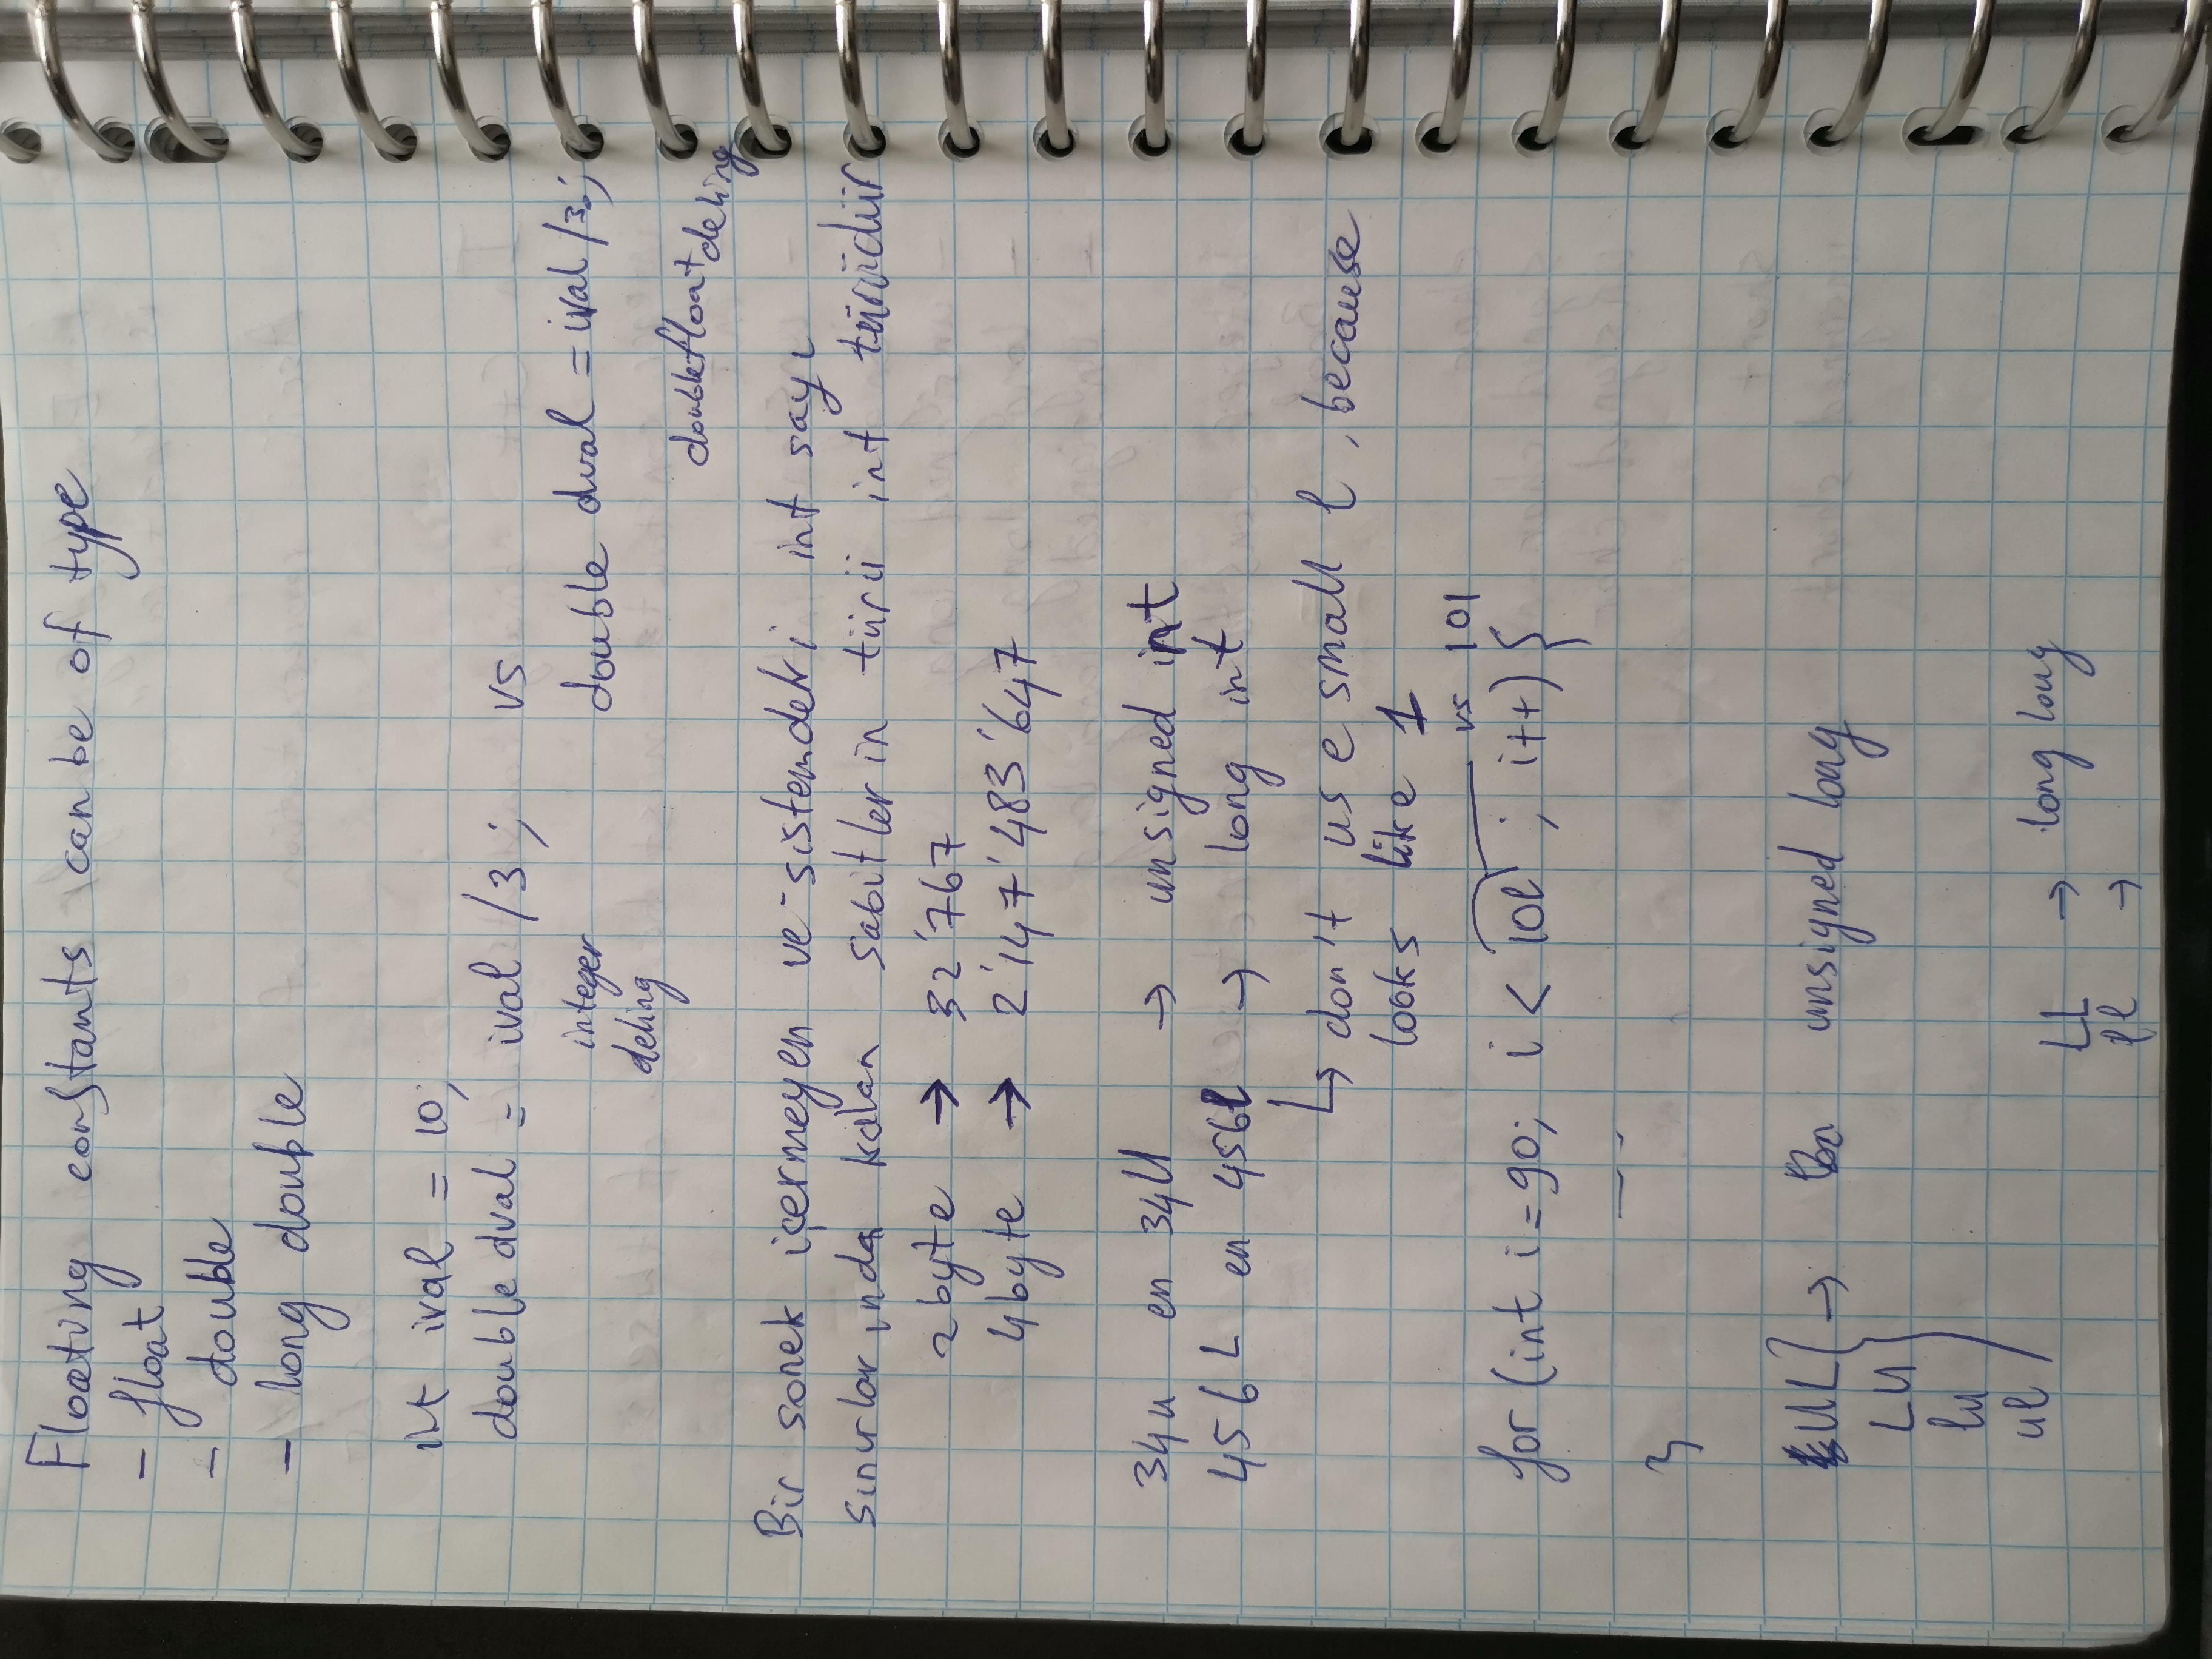 Floating constants can be of type
- float
- double
- long double
int ival = 10;
double dval = ival /3; vs
integer
deling
double dval = ival /3.;
double float deling
Bir sonek içermeyen ve sistemdeki int sayı
sınırlarında kalan sabitlerin türü int türüdür
2byte → 32'767
4byte → 2'147'483'647
34u en 34U → unsigned int
456L en 456l → long int
↳ don't use small l, because
looks like 1
vs 101
for (int i=90; i < 10l ; i++) {
}
UL → unsigned long
LU
lu
ul
LL → long long
ll →